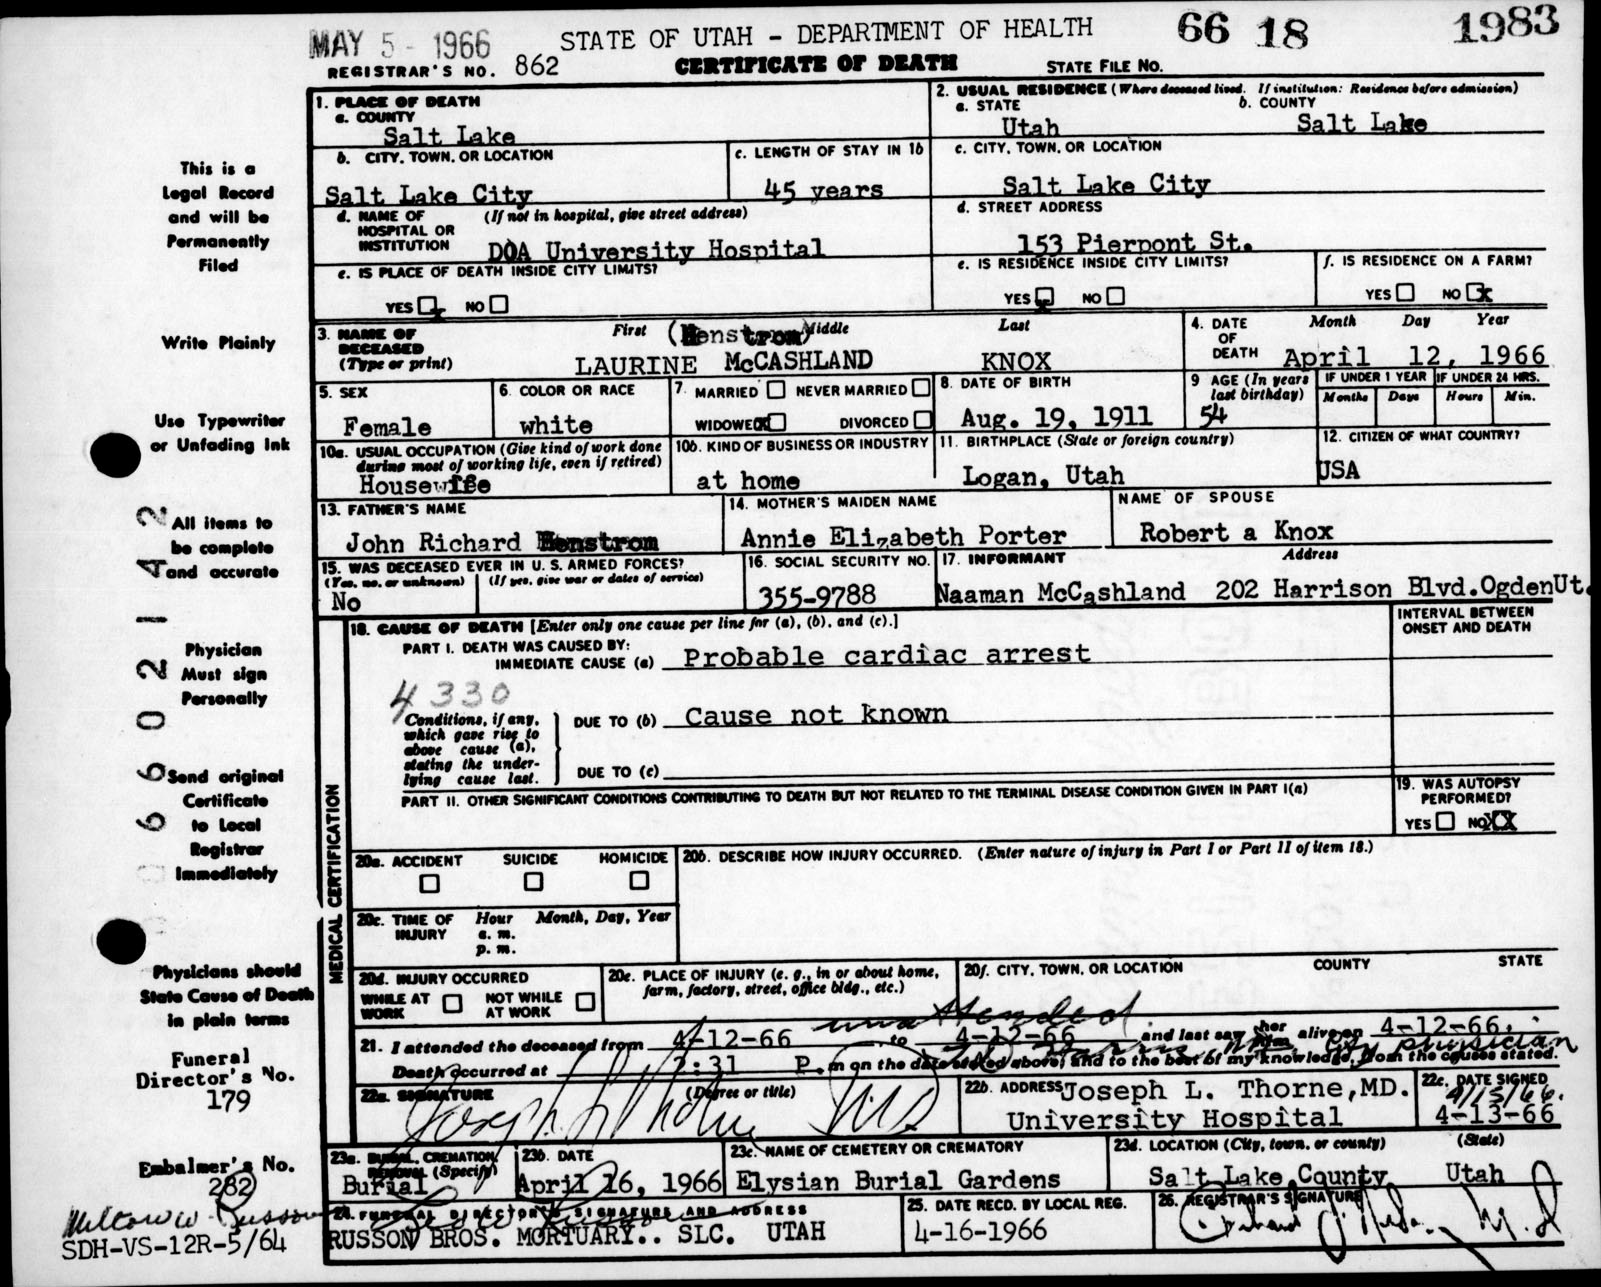 MAY 5 - 1966
STATE OF UTAH - DEPARTMENT OF HEALTH
66 18 1983
REGISTRAR'S NO. 862
CERTIFICATE OF DEATH
STATE FILE NO.
1. PLACE OF DEATH
a. COUNTY
Salt Lake
2. USUAL RESIDENCE (Where deceased lived. If institution: Residence before admission)
a. STATE
Utah
b. COUNTY
Salt Lake
b. CITY, TOWN, OR LOCATION
Salt Lake City
c. LENGTH OF STAY IN 1b
45 years
c. CITY, TOWN, OR LOCATION
Salt Lake City
d. NAME OF HOSPITAL OR INSTITUTION
(If not in hospital, give street address)
DOA University Hospital
d. STREET ADDRESS
153 Pierpont St.
e. IS PLACE OF DEATH INSIDE CITY LIMITS?
YES x NO
e. IS RESIDENCE INSIDE CITY LIMITS?
YES x NO
f. IS RESIDENCE ON A FARM?
YES NO x
3. NAME OF DECEASED
(Type or print)
First Middle Last
(Henstrom)
LAURINE McCASHLAND KNOX
4. DATE OF DEATH
Month Day Year
April 12, 1966
5. SEX
Female
6. COLOR OR RACE
white
7. MARRIED NEVER MARRIED
WIDOWED x DIVORCED
8. DATE OF BIRTH
Aug. 19, 1911
9 AGE (In years last birthday)
54
IF UNDER 1 YEAR
Months Days
IF UNDER 24 HRS.
Hours Min.
10a. USUAL OCCUPATION (Give kind of work done during most of working life, even if retired)
Housewife
10b. KIND OF BUSINESS OR INDUSTRY
at home
11. BIRTHPLACE (State or foreign country)
Logan, Utah
12. CITIZEN OF WHAT COUNTRY?
USA
13. FATHER'S NAME
John Richard Henstrom
14. MOTHER'S MAIDEN NAME
Annie Elizabeth Porter
NAME OF SPOUSE
Robert a Knox
15. WAS DECEASED EVER IN U. S. ARMED FORCES?
(Yes, no, or unknown) (If yes, give war or dates of service)
No
16. SOCIAL SECURITY NO.
355-9788
17. INFORMANT Address
Naaman McCashland 202 Harrison Blvd.OgdenUt.
MEDICAL CERTIFICATION
18. CAUSE OF DEATH [Enter only one cause per line for (a), (b), and (c).]
INTERVAL BETWEEN ONSET AND DEATH
PART I. DEATH WAS CAUSED BY:
IMMEDIATE CAUSE (a) Probable cardiac arrest
4330
Conditions, if any, which gave rise to above cause (a), stating the underlying cause last.
DUE TO (b) Cause not known
DUE TO (c)
PART II. OTHER SIGNIFICANT CONDITIONS CONTRIBUTING TO DEATH BUT NOT RELATED TO THE TERMINAL DISEASE CONDITION GIVEN IN PART I(a)
19. WAS AUTOPSY PERFORMED?
YES NO XX
20a. ACCIDENT SUICIDE HOMICIDE
20b. DESCRIBE HOW INJURY OCCURRED. (Enter nature of injury in Part I or Part II of item 18.)
20c. TIME OF INJURY
Hour Month, Day, Year
a. m.
p. m.
20d. INJURY OCCURRED
WHILE AT WORK NOT WHILE AT WORK
20e. PLACE OF INJURY (e. g., in or about home, farm, factory, street, office bldg., etc.)
20f. CITY, TOWN, OR LOCATION COUNTY STATE
unattended
21. I attended the deceased from 4-12-66 to 4-12-66 and last saw her him alive on 4-12-66.
City physician
Death occurred at 7:31 P. m on the date stated above; and to the best of my knowledge, from the causes stated.
22a. SIGNATURE (Degree or title)
Joseph L Thorne MD
22b. ADDRESS Joseph L. Thorne,MD.
University Hospital
22c. DATE SIGNED
4/15/66.
4-13-66
23a. BURIAL, CREMATION, REMOVAL (Specify)
Burial
23b. DATE
April 16, 1966
23c. NAME OF CEMETERY OR CREMATORY
Elysian Burial Gardens
23d. LOCATION (City, town, or county) (State)
Salt Lake County Utah
24. FUNERAL DIRECTOR'S SIGNATURE AND ADDRESS
RUSSON BROS. MORTUARY.. SLC. UTAH
25. DATE RECD. BY LOCAL REG.
4-16-1966
26. REGISTRAR'S SIGNATURE
This is a
Legal Record
and will be
Permanently
Filed
Write Plainly
Use Typewriter
or Unfading Ink
All items to
be complete
and accurate
Physician
Must sign
Personally
Send original
Certificate
to Local
Registrar
Immediately
Physicians should
State Cause of Death
in plain terms
Funeral
Director's No.
179
Embalmer's No.
282
Milton W Russon
SDH-VS-12R-5/64